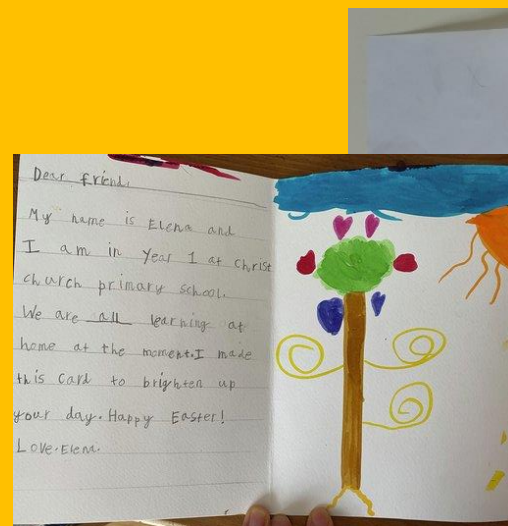 Dear friend,
My name is Elena and
I am in Year 1 at Christ
church primary school.
We are all learning at
home at the moment. I made
this card to brighten up
your day. Happy Easter!
Love. Elena.